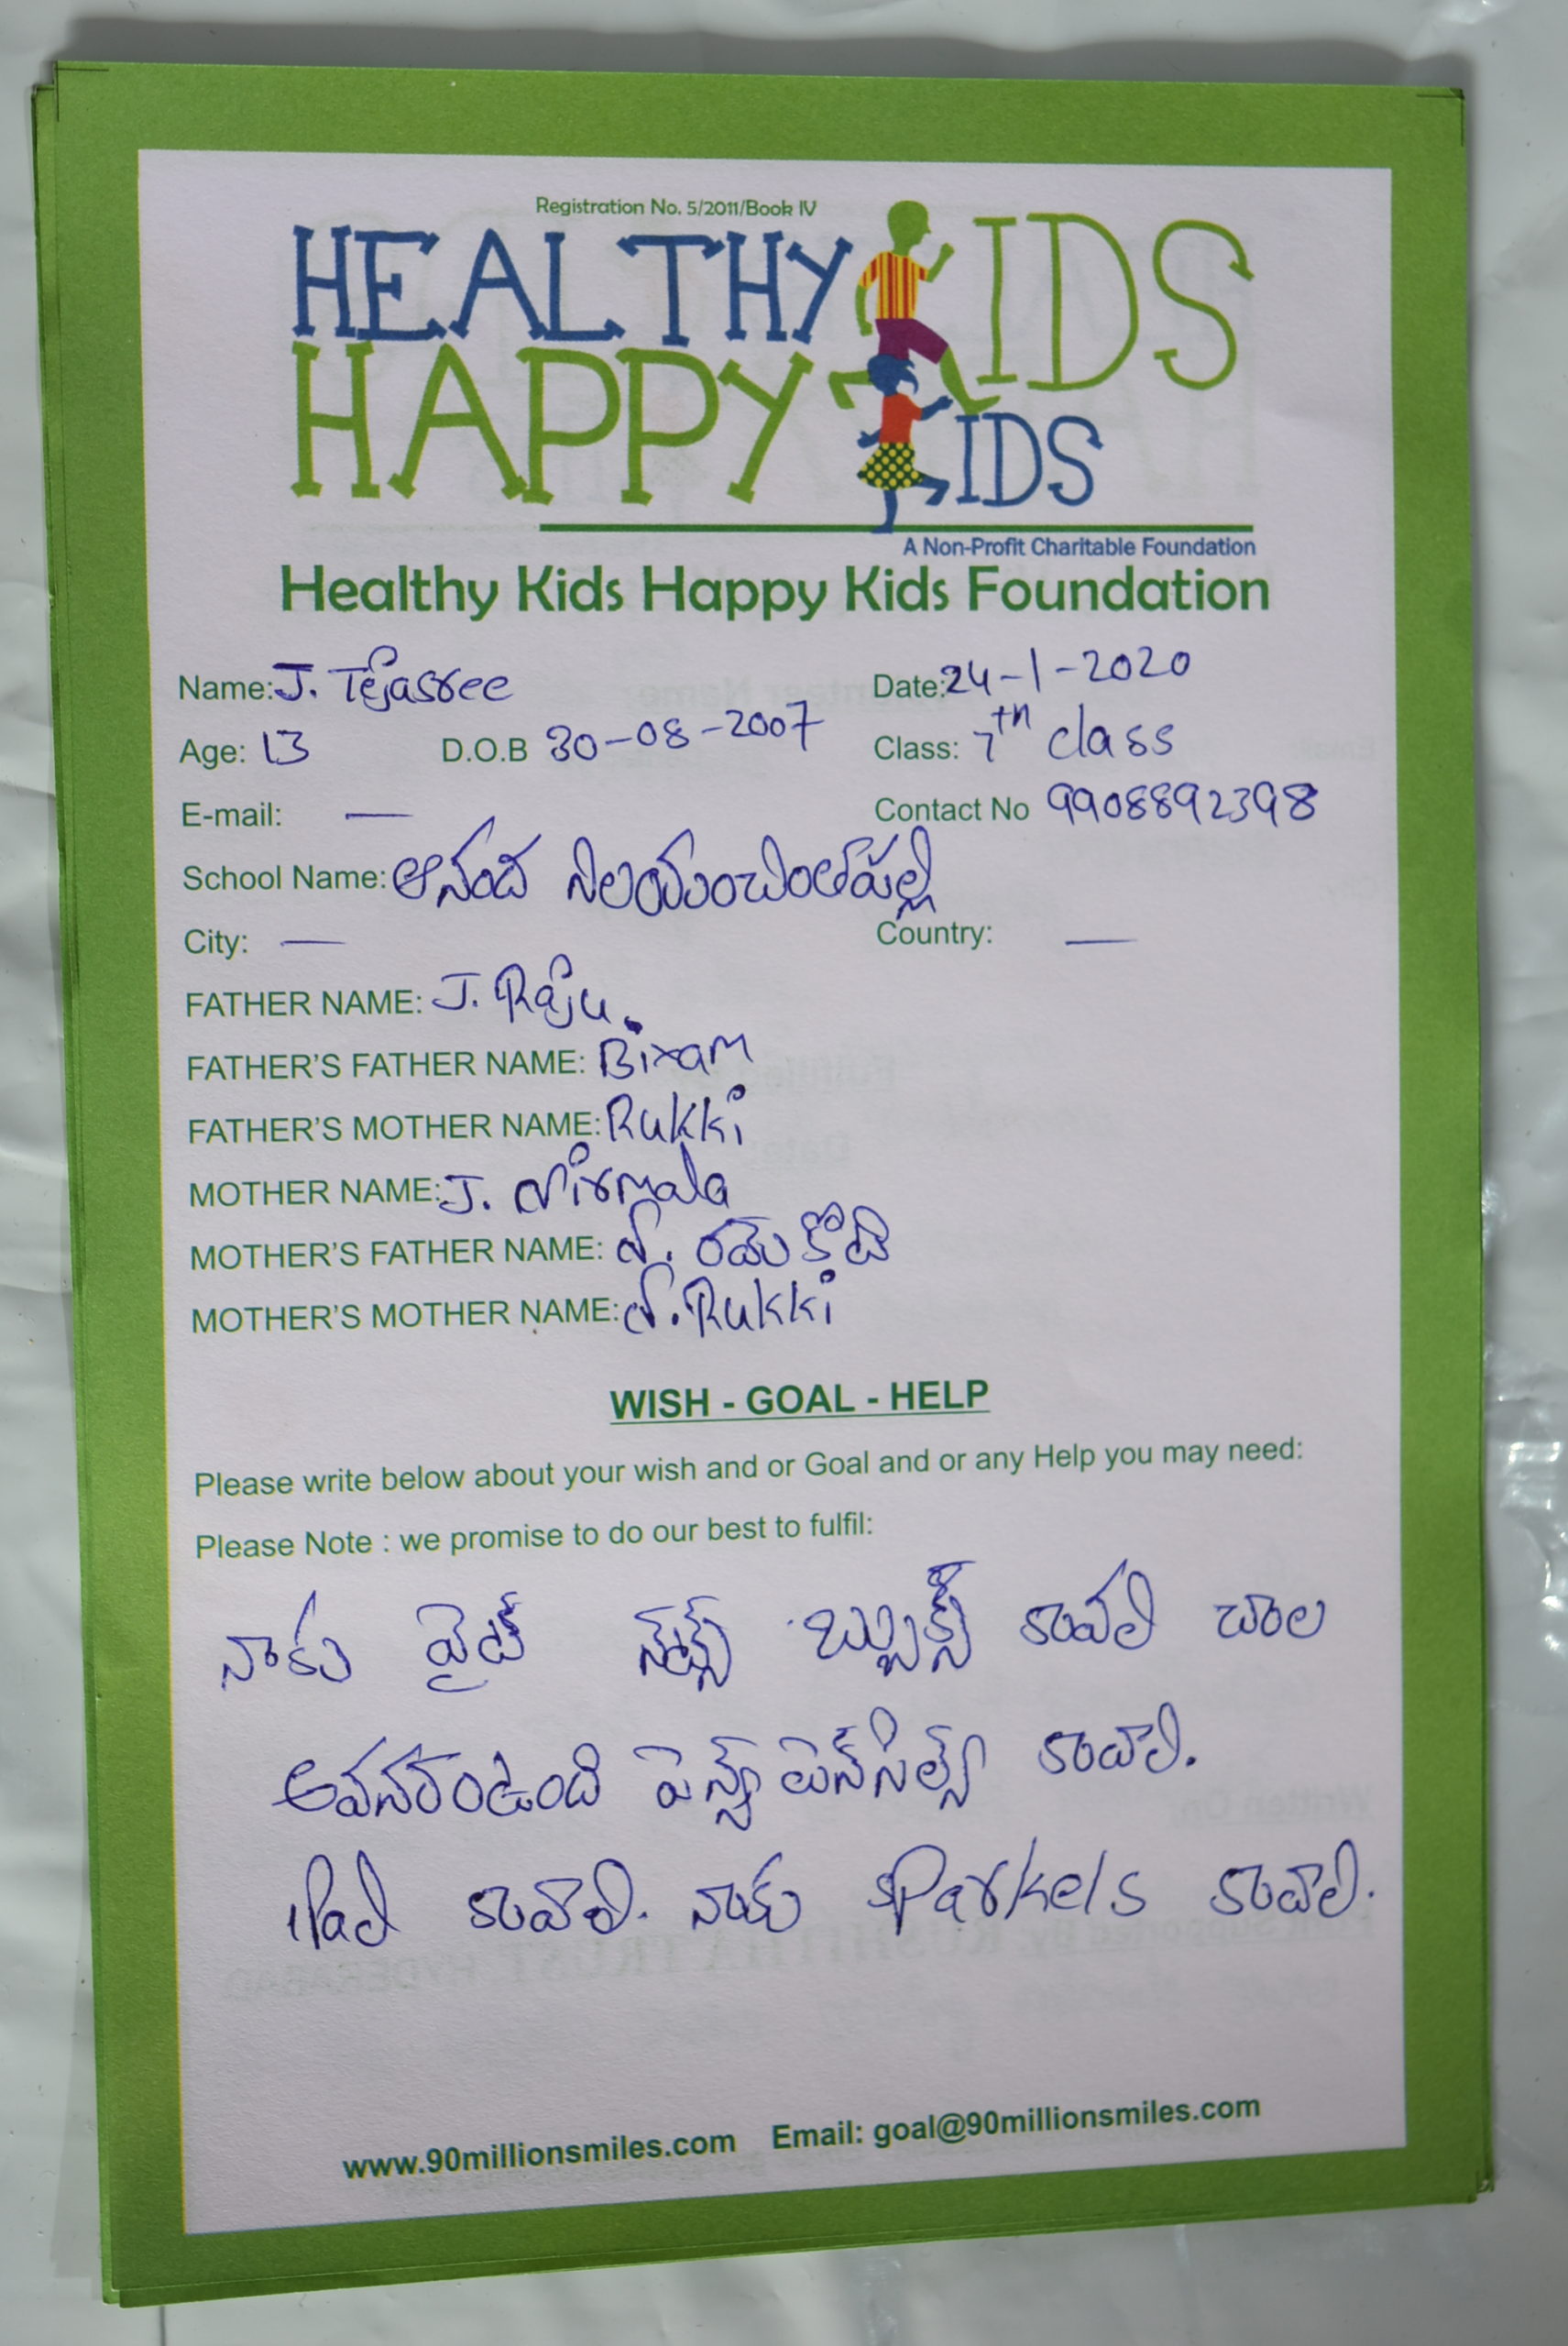 Registration No. 5/2011/Book IV
HEALTHY KIDS
HAPPY KIDS
A Non-Profit Charitable Foundation
Healthy Kids Happy Kids Foundation
Name: J. Tejasree Date: 24-1-2020
Age: 13 D.O.B 30-08-2007 Class: 7th class
E-mail: — Contact No 9908892398
School Name: ఆనంద నిలయంచింతపల్లి
City: — Country: —
FATHER NAME: J. Raju.
FATHER'S FATHER NAME: Bixam
FATHER'S MOTHER NAME: Rukki
MOTHER NAME: J. Nirmala
MOTHER'S FATHER NAME: N. రమెకోటి
MOTHER'S MOTHER NAME: N. Rukki
WISH - GOAL - HELP
Please write below about your wish and or Goal and or any Help you may need:
Please Note : we promise to do our best to fulfil:
నాకు వైట్ నోట్స్ బ్బుక్స్ కావలి చాల
అవసరంఉంది పెన్స్ పెన్సిల్స్ కావాలి.
iPad కావాలి. నాకు sParkels కావాలి.
www.90millionsmiles.com Email: goal@90millionsmiles.com